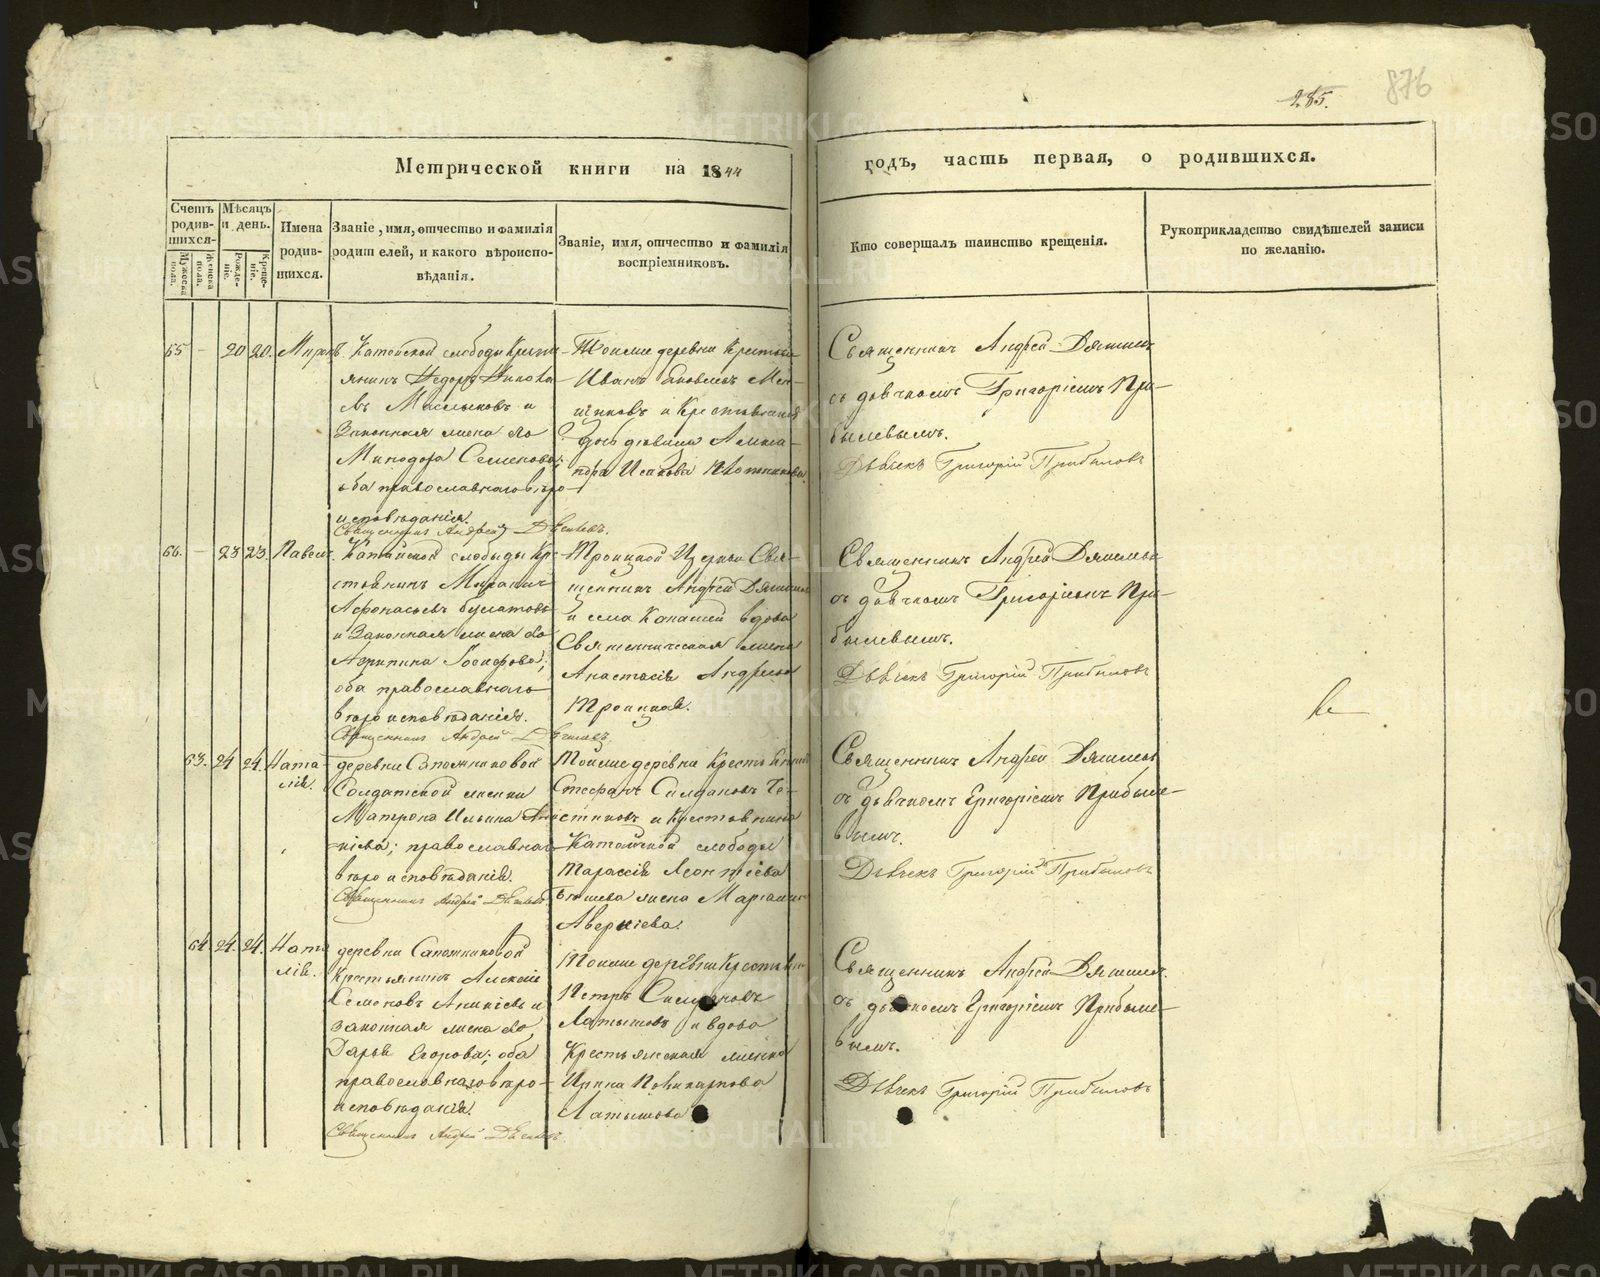 285.
876
Метрической книги на 1844
годъ, часть первая, о родившихся.
Счетъ родив-шихся.
Мужеска пола.
Женска пола.
Мѣсяцъ и день.
Рожде-ніе.
Креще-ніе.
Имена родив-шихся.
Званіе, имя, отчество и фамилія
родителей, и какого вѣроиспо-
вѣданія.
Званіе, имя, отчество и фамилія
воспріемниковъ.
Кто совершалъ таинство крещенія.
Рукоприкладство свидѣтелей записи
по желанію.
65 - 20 20. Миронъ
Катайской слободы Кресть-
янинъ Федоръ
и
Законная жена его
Минодора Семенова;
оба православнаго вѣро-
исповѣданія.
Священникъ Андрей
Тоже деревни Крестьян
Иванъ Яковлевъ
и Крестьянская
дѣвица
Исакова Плотникова.
Священникъ Андрей
съ дьячкомъ Григоріемъ При-
былевымъ.
Дьячекъ Григорій Прибылевъ
66. - 23 23. Павелъ.
Катайской слободы Кре-
стьянинъ
Афонасьевъ Булатовъ
и Законная жена его
Агрипина
оба православнаго
вѣроисповѣданія.
Священникъ Андрей
Троицкой Церкви Свя-
щенникъ Андрей
и села вдова
Священническая жена
Анастасія Андреева
Троицкая.
Священникъ Андрей
съ дьячкомъ Григоріемъ При-
былевымъ.
Дьячекъ Григорій Прибылевъ
63. 24 24. Ната-
лія.
деревни Сапожниковой
Солдатской женки
Матрона Ильина Ани-
кіева; православнаго
вѣроисповѣданія.
Священникъ Андрей
Тойже деревни Крестьянинъ
Стефанъ
и Крестьянина
Катайской слободы
Тарассія Леонтіева
жена
Аверкіева.
Священникъ Андрей
съ дьячкомъ Григоріемъ Прибыле-
вымъ.
Дьячекъ Григорій Прибылевъ
64. 24. 24. Ната
лія.
деревни Сапожниковой
Крестьянинъ Алексій
Семеновъ Аникіевъ и
законная жена его
Дарья Егорова; оба
православнаго вѣро-
исповѣданія.
Священникъ Андрей
Тойже деревни Крестьянинъ
Петръ
Латышовъ и вдова
Крестьянская женка
Ирина Поликарпова
Латышова
Священникъ Андрей
съ дьячкомъ Григоріемъ Прибыле-
вымъ.
Дьячекъ Григорій Прибылевъ
METRIKI.GASO-URAL.RU